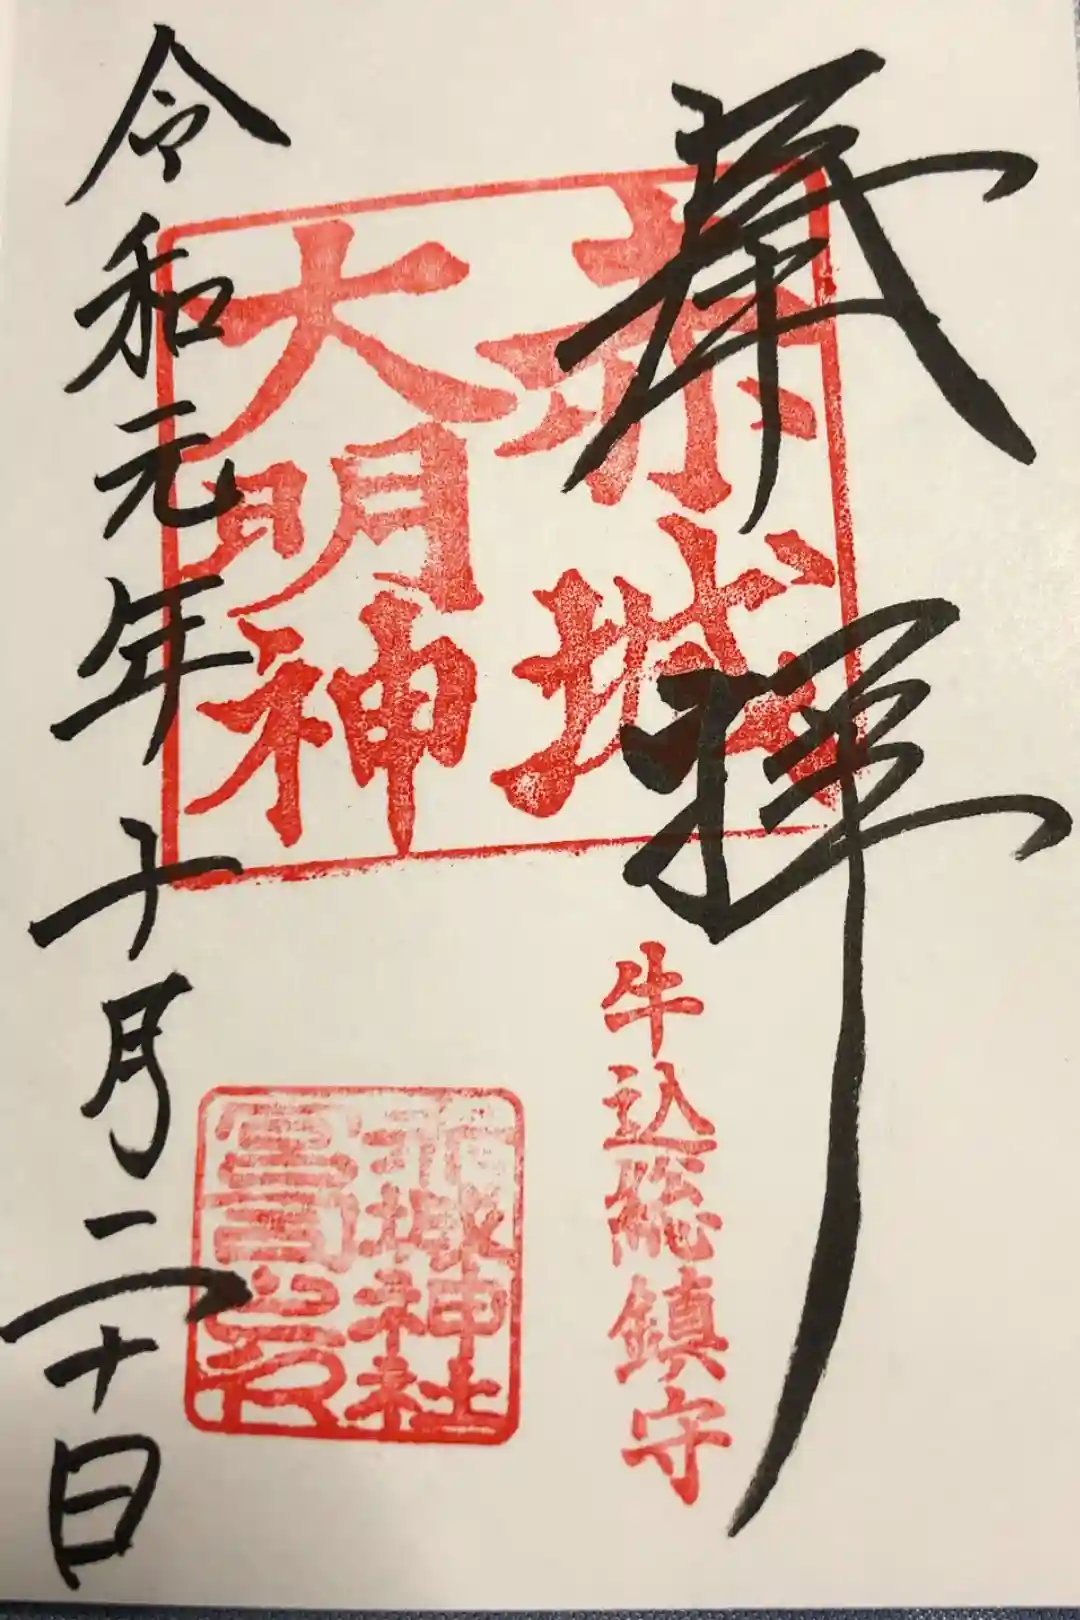 奉拝
赤城
大明神
牛込総鎮守
赤城神社
令和元年十月二十日